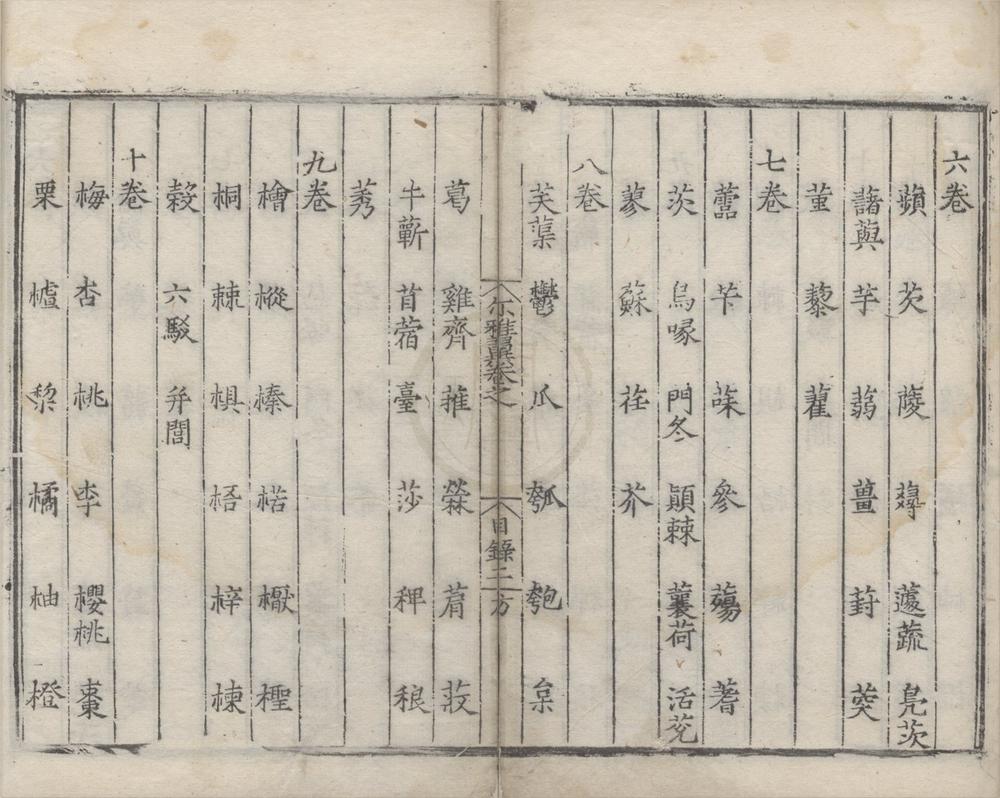 六卷
蘋 芡 蔆 蕁 蘧蔬 鳧茨
藷藇 芋 蒻 薑 葑 葵
菫 藜 藋
七卷
蘦 苄 菋 參 蓍
茨 烏喙 門冬 顛棘 蘘荷 活莌
蓼 蘇 荏 芥
八卷
芙蕖 鬱 瓜 瓠 匏 枲
尒雅翼卷之 目錄二 方
葛 雞齊 蓷 菺 菣
牛蘄 苜蓿 臺 莎 稗 稂
莠
九卷
檜 樅 榛 楛 檉
桐 棘 椇 梧 梓 楝
榖 六駁 并閭
十卷
梅 杏 桃 李 櫻桃 棗
栗 櫨 棃 橘 柚 橙